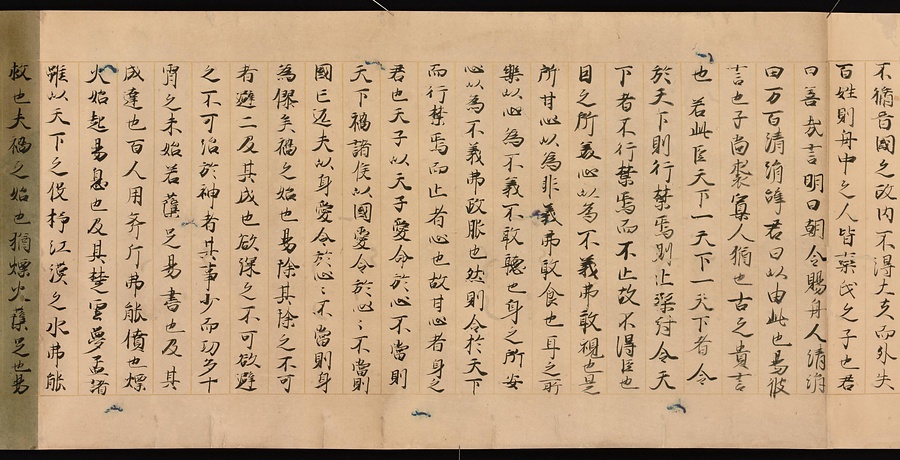 不脩晋國之政内不得大夫而外失
百姓則舟中之人皆欒氏之子也君
曰善哉言明日朝令賜舟人清涓
田万百清涓辞君曰以由此也易彼
言也子尚喪寡人猶也古之貴言
也若此臣天下一天下一天下者令
於天下則行禁焉則止桀紂令天
下者不行禁焉而不止故不得臣也
目之所美心以為不義弗敢視也是
所甘心以為非義弗敢食也耳之所
樂以心為不義不敢聴也身之所安
心以為不義弗敢服也然則令於天下
而行禁焉而止者心也故甘心者身之
君也天子以天子愛令於心不當則
天下禍諸侯以國愛令於心〻不當則
國亡匹夫以身愛令於心〻不當則身
為僇矣禍之始也易除其除之不可
者避之及其成也欲除之不可欲避
之不可治於神者其事少而功多干
霄之未始若蘖足易書也及其
成達也百人用斧斤弗能僨也熛
火始起易息也及其焚雲夢孟諸
雖以天下之役抒江漢之水弗能
救也夫禍之始也猶熛火蘖足也易